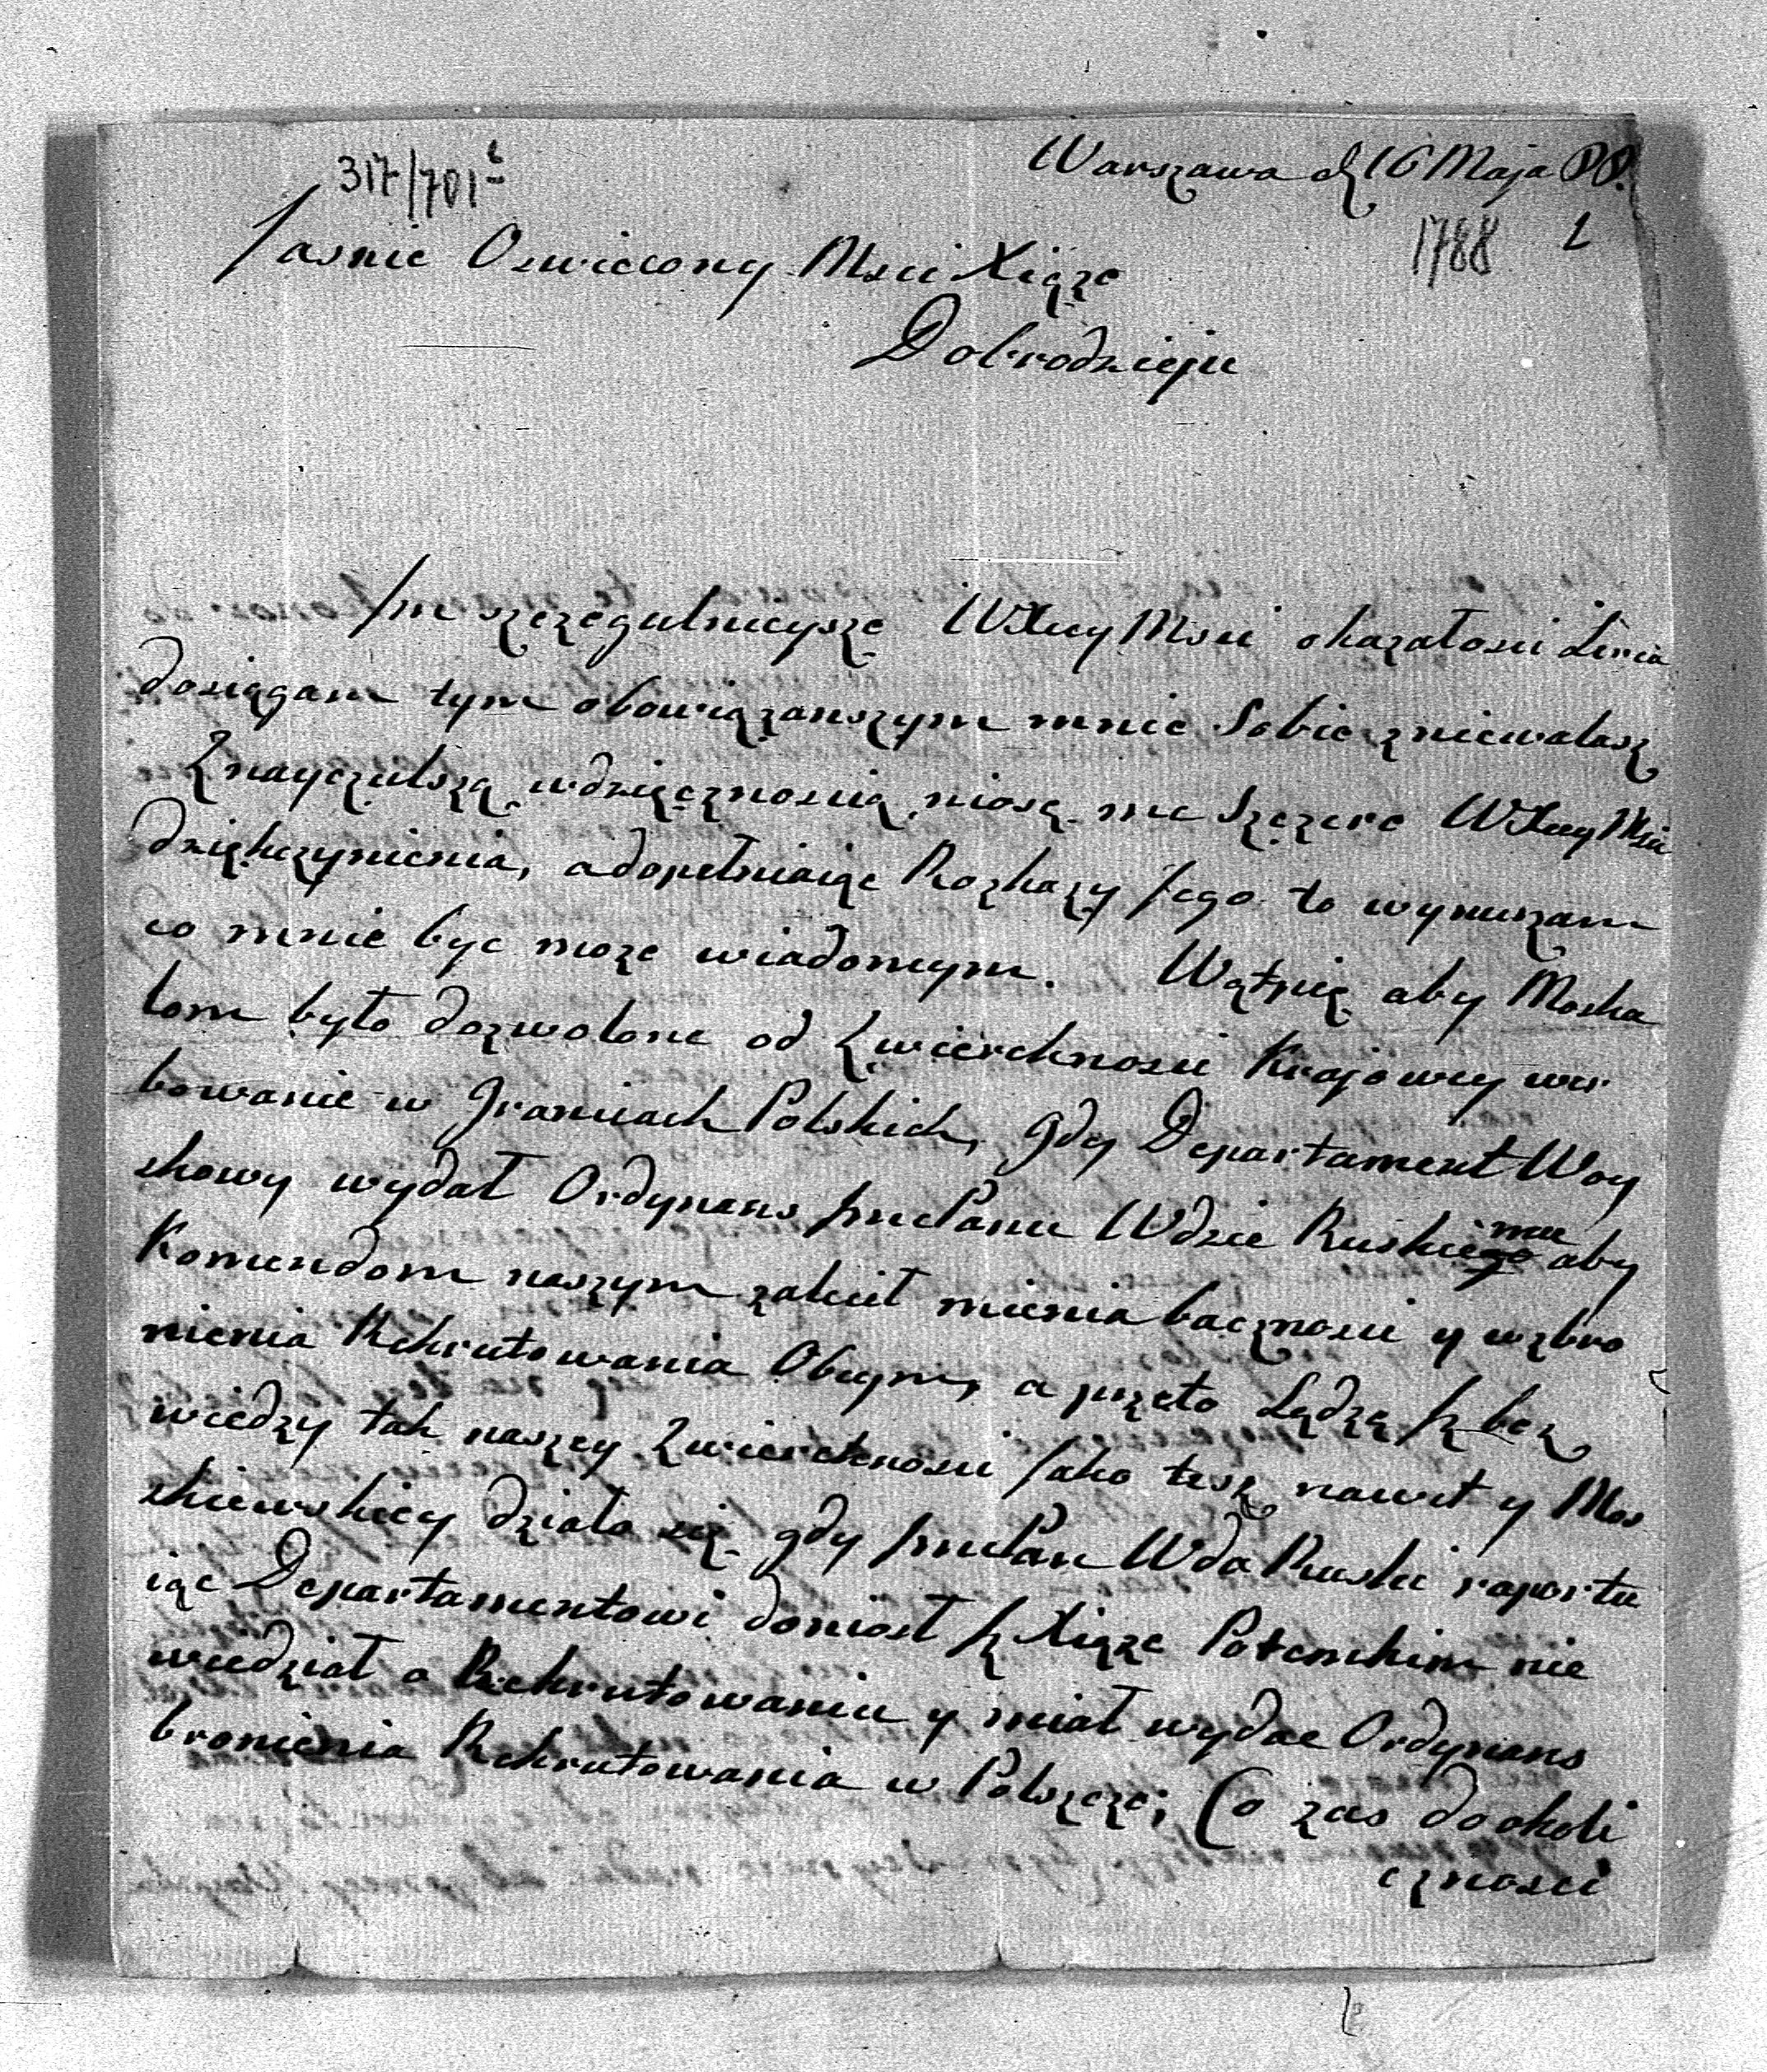 317/701
Warszawa d 16 Maja 88.
1788 1
Jasnie Oswiecony Msci Xiąze
Dobrodzieju
Im szczegulnieysze WXcey Msci okazałosci
dosięgam tym obowiązanszym mnie Sobie zniewalasz
Z nayczulszą wdzięcznoscią niosę me Szczere WXcey Msci
dziękczynienia, a dopełniaiąc Rozkazy Jego to wynurzam
co mnie byc moze wiadomym. Wątpię aby Moska
lom było dozwolone od Zwierchnosci Krajowey wer
bowanie w Granicach Polskich, gdy Departament Woy
skowy wydał Ordynans Jmc Panu Wdzie Ruskiemu aby
Komendom naszym zalecił mienia bacznosci y wzbro
nienia Rekrutowania Obcym, a przeto Sądzę Iz bez
wiedzy tak naszey Zwierchnosci Jako tesz nawet y Mos
kiewskiey działo się gdy Jmc Pan Wda Ruski raportu
iąc Departamentowi doniosł Iz Xiąze Potemkim nie
wiedział o Rekrutowaniu y miał wydac Ordynans
bronienia Rekrutowania w Polszcze; Co zas do okoli
cznosci